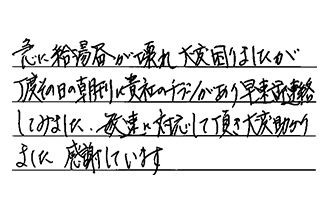 急に給湯器が壊れ大変困りましたが
丁度その日の朝刊に貴社のチラシがあり早速連絡
してみました、敏速に対応して頂き大変助かり
ました 感謝しています